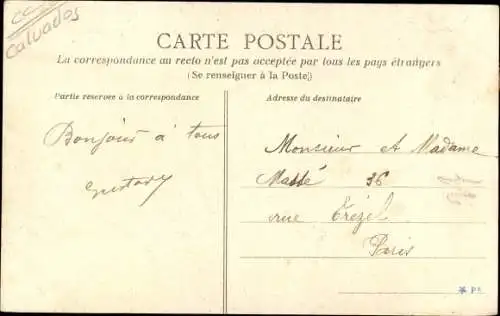 CC
Calvados
CARTE POSTALE
La correspondance au recto n'est pas acceptée par tous les pays étrangers
(Se renseigner à la Poste)
Partie réservée à la correspondance
Adresse du destinataire
Bonjour à tous
Gustave
Monsieur et Madame
Massé 36
rue Trézel
Paris